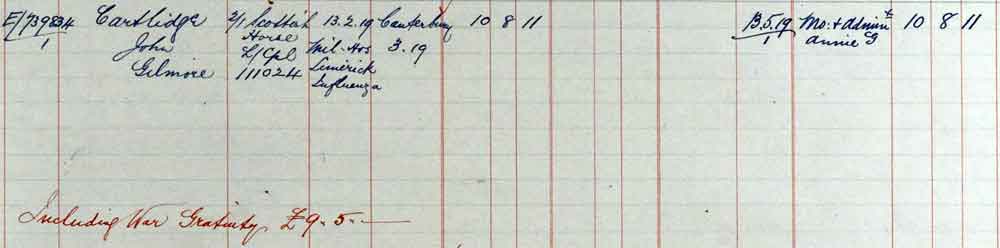 E/739834/1 Cartlidge 2/1 Scottish 13.2.19 Canterbury 10 8 11 13.5.19 Mo: & Admin x
John Horse Mil. Hos 3.19 1 Annie G 10 8 11
Gilmore L/Cpl Limerick
111024 Influenza
Including War Gratuity £9-5-